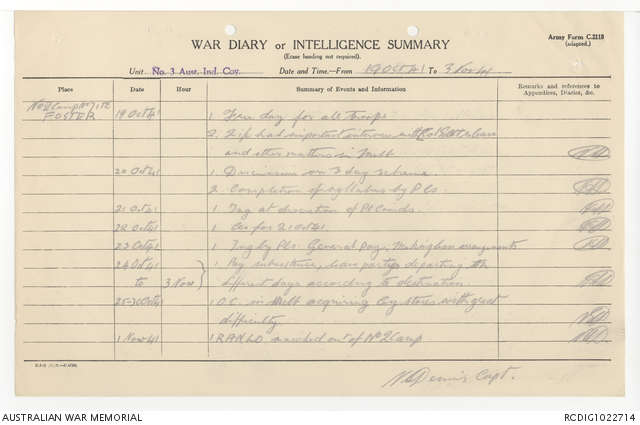 Army Form C.2118
(adapted.)
WAR DIARY or INTELLIGENCE SUMMARY
(Erase heading not required).
Unit No. 3 Aust. Ind. Coy. Date and Time.—From 19 Oct 41 To 3 Nov 41
Place Date Hour Summary of Events and Information Remarks and references to Appendices, Diaries, &c.
FOSTER 19 Oct 41 1 Free day for all troops
2 had important interview with
and other matters in Melb
20 Oct 41 1 Discussion on 3 day scheme.
2 Completion of syllabus by Pls.
21 Oct 41 1 Tng at direction of Pl Comds.
22 Oct 41 1 As for 21 Oct 41.
23 Oct 41 1 Tng by Pls. General pay, Making leave arrangements
24 Oct 41 1 Pay subsistence, leave partys departing
to 3 Nov different days according to destination
25-30 Oct 41 1 O.C. in Melb acquiring Coy stores with great
difficulty.
1 Nov 41 1 marched out of No 2 Camp
Capt.
AUSTRALIAN WAR MEMORIAL
RCDIG1022714